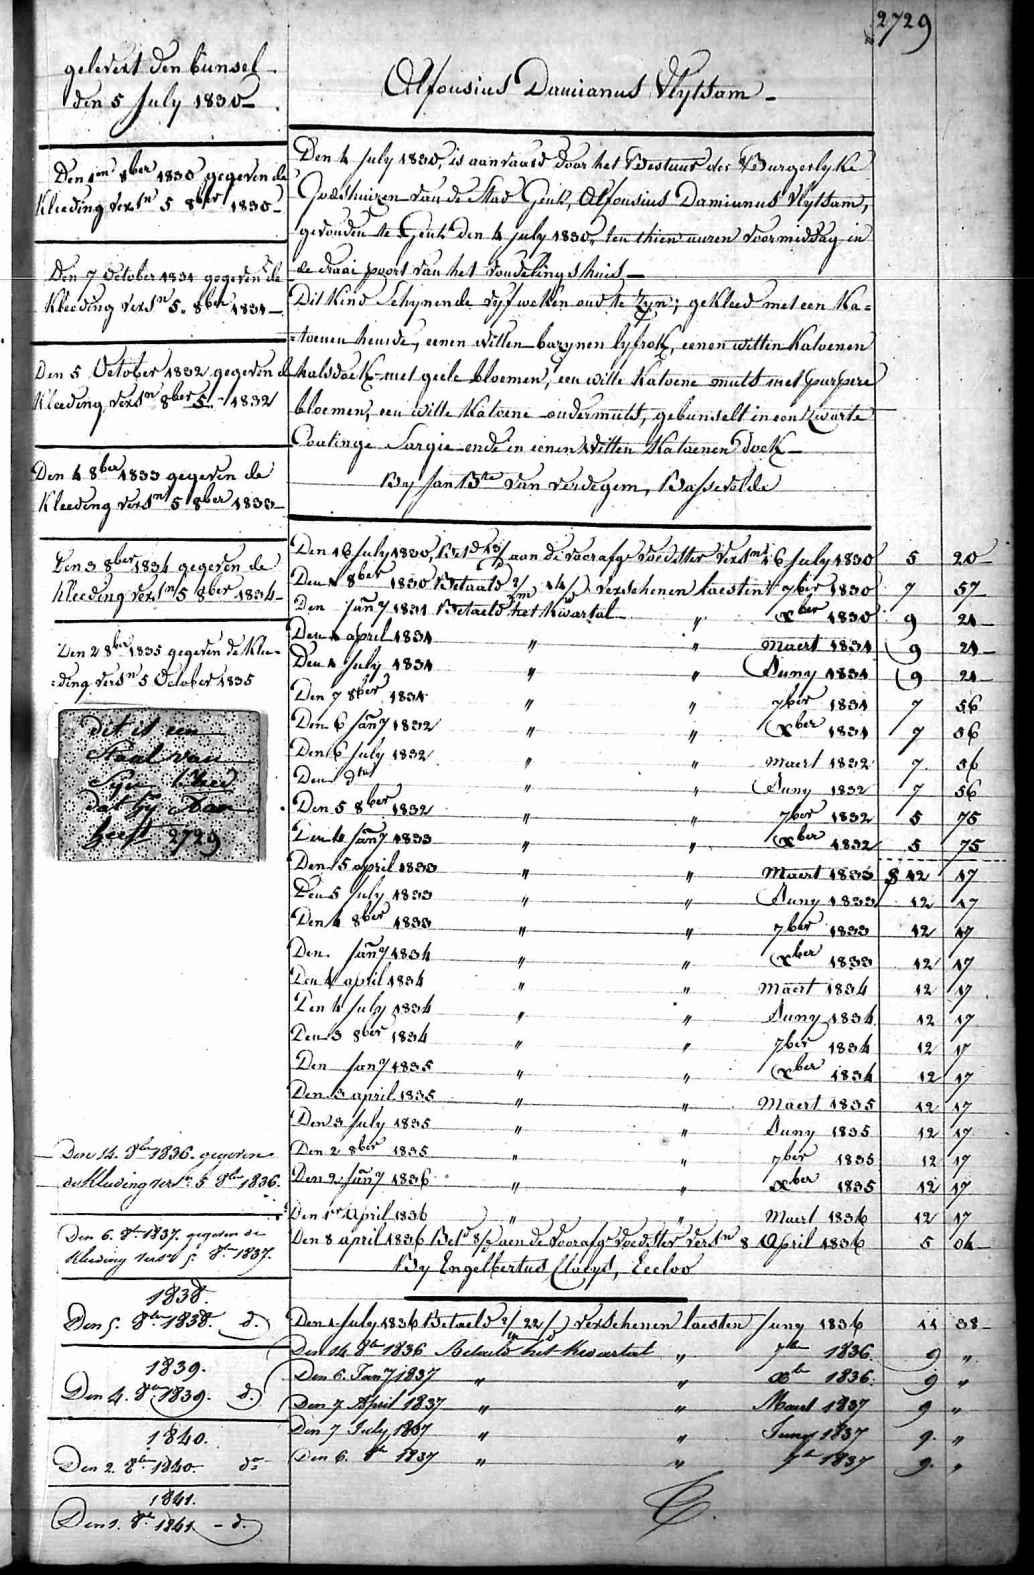 2729
gelevert den bunsel
den 5 July 1830
Den 1en 8ber 1830 gegeven de
Kleeding versn 5 8ber 1830
Den 7 October 1831 gegeven de
Kleeding versn 5. 8ber 1831
Den 5 October 1832 gegeven de
Kleeding versn 8ber 5. 1832
Den 4 8ber 1833 gegeven de
Kleeding versn 5 8ber 1833
Den 3 8ber 1834 gegeven de
Kleeding versn 5 8ber 1834
Den 2 8ber 1835 gegeven de Klee-
ding versn 5 October 1835
dit is een
Staal van
Syn kleed
dat hy aan
heeft 2729
Den 14. 8ber 1836. gegeven
de Kleeding versn 5 8ber 1836.
Den 6. 8r 1837. gegeven de
Kleeding versn 5. 8br 1837.
1838.
Den 5. 8br 1838. d.
1839.
Den 4. 8br 1839. d.
1840.
Den 2. 8br 1840. do
1841.
Den 1. 8br 1841 - d.
Alfonsius Damianus Vlytsam
Den 4 July 1830, is aanvaard door het Bestuur der Burgerlyke
Godshuizen van de Stad Gent, Alfonsius Damianus Vlytsam,
gevonden te Gent den 4 july 1830, ten thien uuren voormiddag in
de draai poort van het vondelingshuis
Dit Kind Schynende vyf weken oud te Zyn; gekleed met een Ka=
=toenen hemde, eenen witten bazynen lyfrok, eenen witten Katoenen
halsdoek met geele bloemen, een witte Katoene muts met purpere
bloemen, een witte Katoene ondermuts, gebunselt in een Zwarte
Coatinge Sargie ende in eenen Witten Katoenen Doek
By Jan Bte van Verdegem, Bassevelde
Den 16 July 1830, Btd 13/ aan de voorafge voedster versn 16 July 1830 5 20
Den 1 8ber 1830 Betaald 2/m 14/d verschenen laesten 7ber 1830 7 57
Den Jany 1831 Betaeld het Kwartal " xber 1830 9 24
Den 1 april 1831 " " Maert 1831 9 24
Den 1 July 1831 " " Juny 1831 9 24
Den 7 8ber 1831 " " 7ber 1831 7 56
Den 6 Jany 1832 " " xber 1831 7 56
Den 6 July 1832 " " Maert 1832 7 56
Den dto " " Juny 1832 7 56
Den 5 8ber 1832 " " 7ber 1832 5 75
Den 4 Jany 1833 " " xber 1832 5 75
Den 5 april 1833 " " Maert 1833 12 17
Den 5 July 1833 " " Juny 1833 12 17
Den 4 8ber 1833 " " 7ber 1833 12 17
Den Jany 1834 " " xber 1833 12 17
Den 4 april 1834 " " Maert 1834 12 17
Den 4 July 1834 " " Juny 1834 12 17
Den 3 8ber 1834 " " 7ber 1834 12 17
Den Jany 1835 " " xber 1834 12 17
Den 3 april 1835 " " Maert 1835 12 17
Den 3 July 1835 " " Juny 1835 12 17
Den 2 8ber 1835 " " 7ber 1835 12 17
Den 2 Jany 1836 " " xber 1835 12 17
Den 1r April 1836 " " Maert 1836 12 17
Den 8 april 1836 Betd 8/d aen de voorafge voedster versn 8 April 1836 5 04
By Engelbertus Claeys, Eecloo
Den 1 July 1836 Betaeld 2/m 22/d verschenen laesten Juny 1836 11 38
Den 14. 8br 1836 Betaeld het Kwartal " 7br 1836. 9 "
Den 6. Jany 1837 " " xbr 1836. 9 "
Den 7 April 1837 " " Maert 1837 9 "
Den 7 July 1837 " " Juny 1837 9. "
Den 6. 8r 1837 " " 7br 1837 9. "